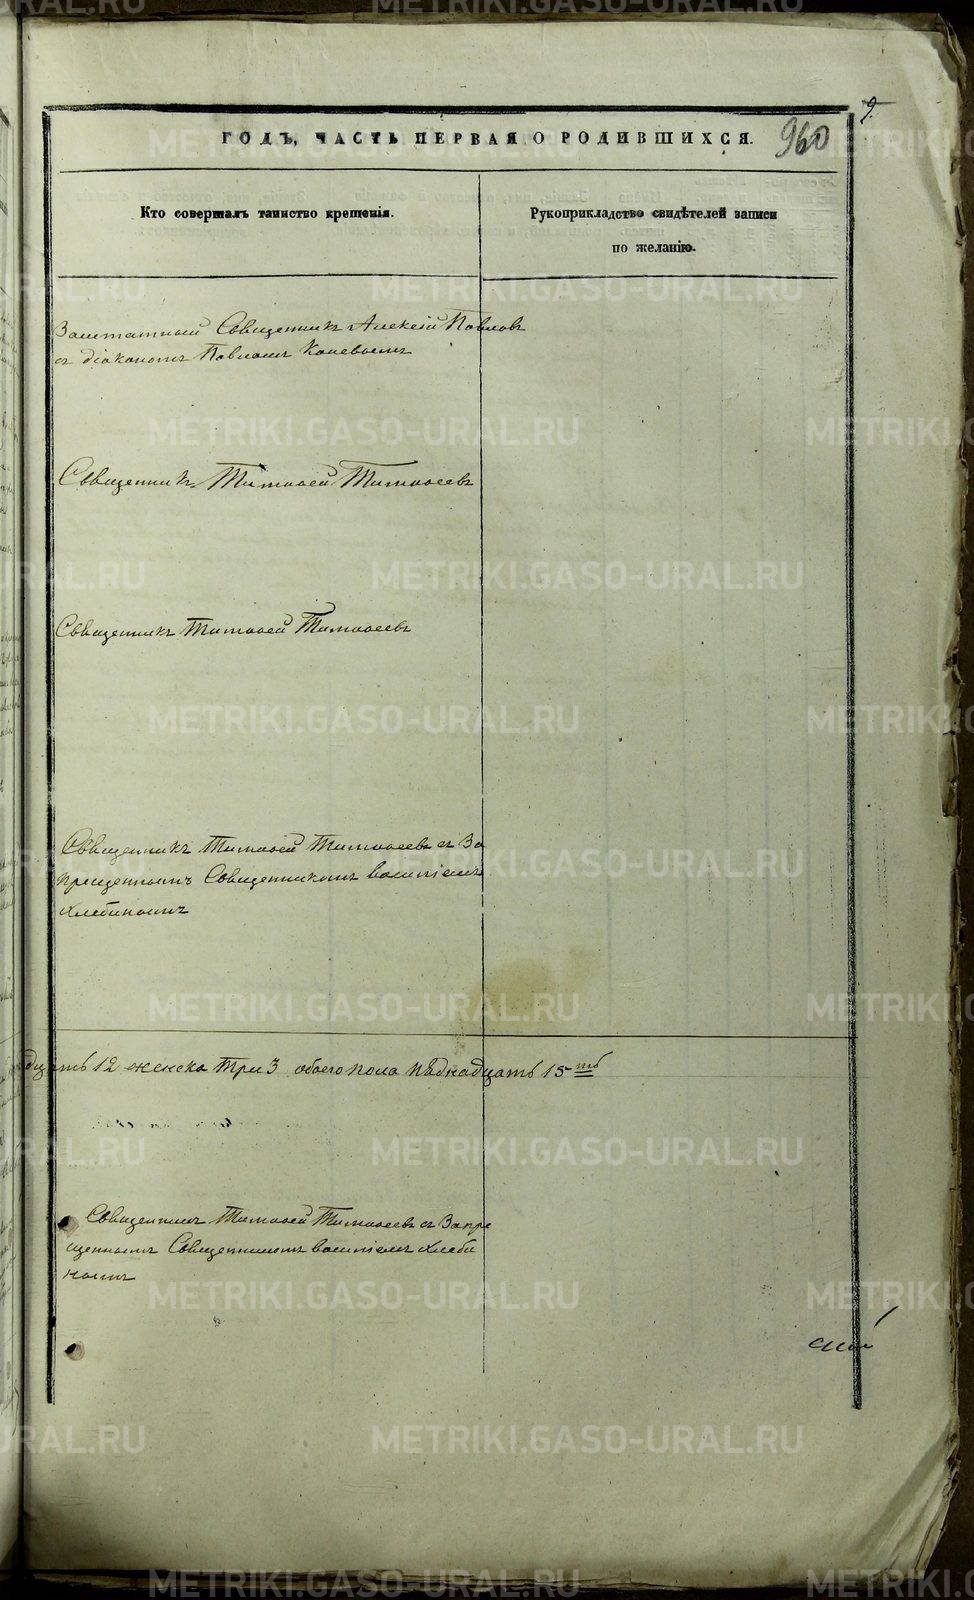 9.
ГОДЪ, ЧАСТЬ ПЕРВАЯ О РОДИВШИХСЯ. 960
Кто совершалъ таинство крещенія.
Рукоприкладство свидѣтелей записи
по желанію.
Заштатный Священникъ Алексій Павловъ
съ діакономъ Павломъ
Священникъ Тимоѳей Тимоѳеевъ
Священникъ Тимоѳей Тимоѳеевъ
Священникъ Тимоѳей Тимоѳеевъ съ За
прещеннымъ Священникомъ Василіемъ
Хлебинымъ
дцать 12 женска три 3 обоего пола пядна́дцать 15ть
Священникъ Тимоѳей Тимоѳеевъ съ Запре
щеннымъ Священникомъ Василіемъ Хлеби
нымъ
METRIKI.GASO-URAL.RU